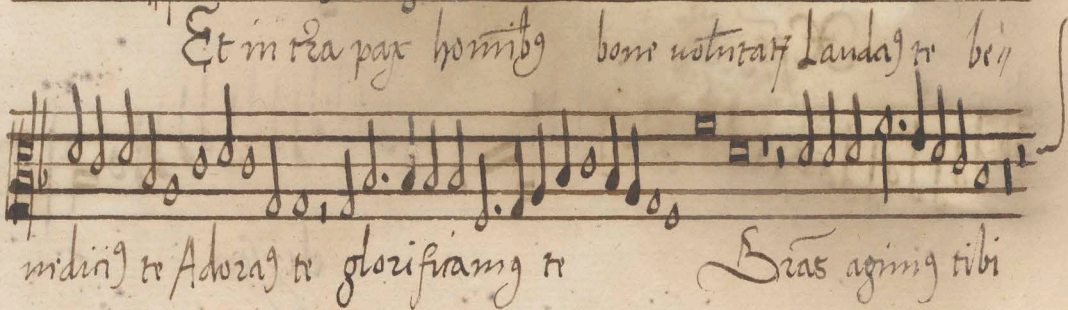 Et in tr̃a pax homĩbꝯ bone volũtatꝭ Laudaꝯ te be〃
nediciꝯ te Adoraꝯ te glorificamꝯ te Gr̃as agimꝯ tibi